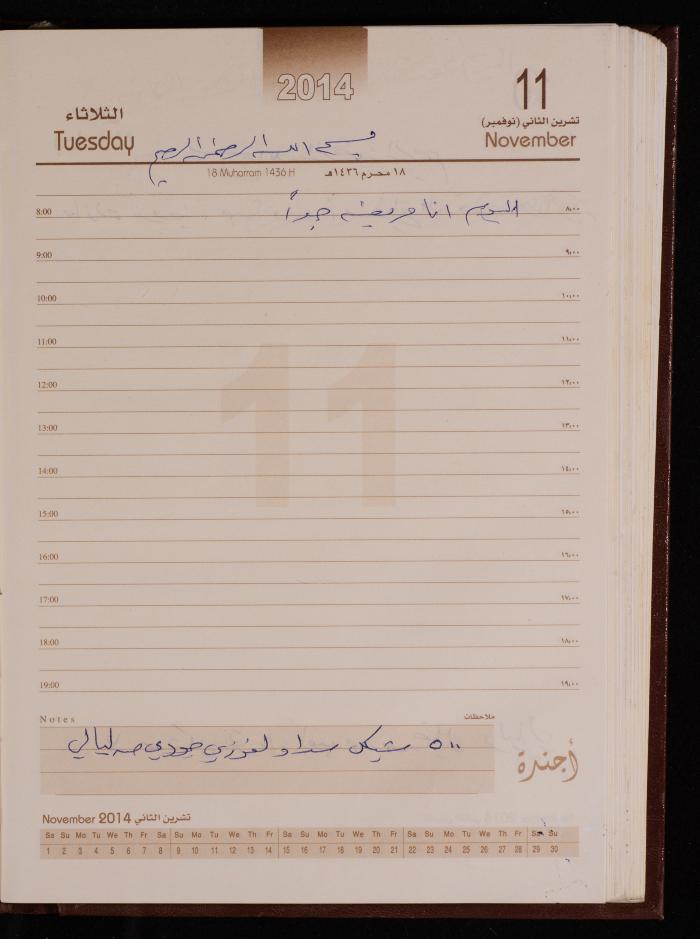 2014
11
الثلاثاء
تشرين الثاني (نوفمبر)
Tuesday
November
بسم الله الرحمن الرحيم
18 Muharram 1436 H
١٨ محرم ١٤٣٦هـ
8:00 اليوم انا مريضة جداً ٨،٠٠
9:00 ٩،٠٠
10:00 ١٠،٠٠
11:00 ١١،٠٠
11
12:00 ١٢،٠٠
13:00 ١٣،٠٠
14:00 ١٤،٠٠
15:00 ١٥،٠٠
16:00 ١٦،٠٠
17:00 ١٧،٠٠
18:00 ١٨،٠٠
19:00 ١٩،٠٠
Notes ملاحظات
٥٠٠ شيكل سداد لفوزي من ليالي
أجندة
November 2014 تشرين الثاني
Sa Su Mo Tu We Th Fr Sa Su Mo Tu We Th Fr Sa Su Mo Tu We Th Fr Sa Su Mo Tu We Th Fr Sa Su
1 2 3 4 5 6 7 8 9 10 11 12 13 14 15 16 17 18 19 20 21 22 23 24 25 26 27 28 29 30